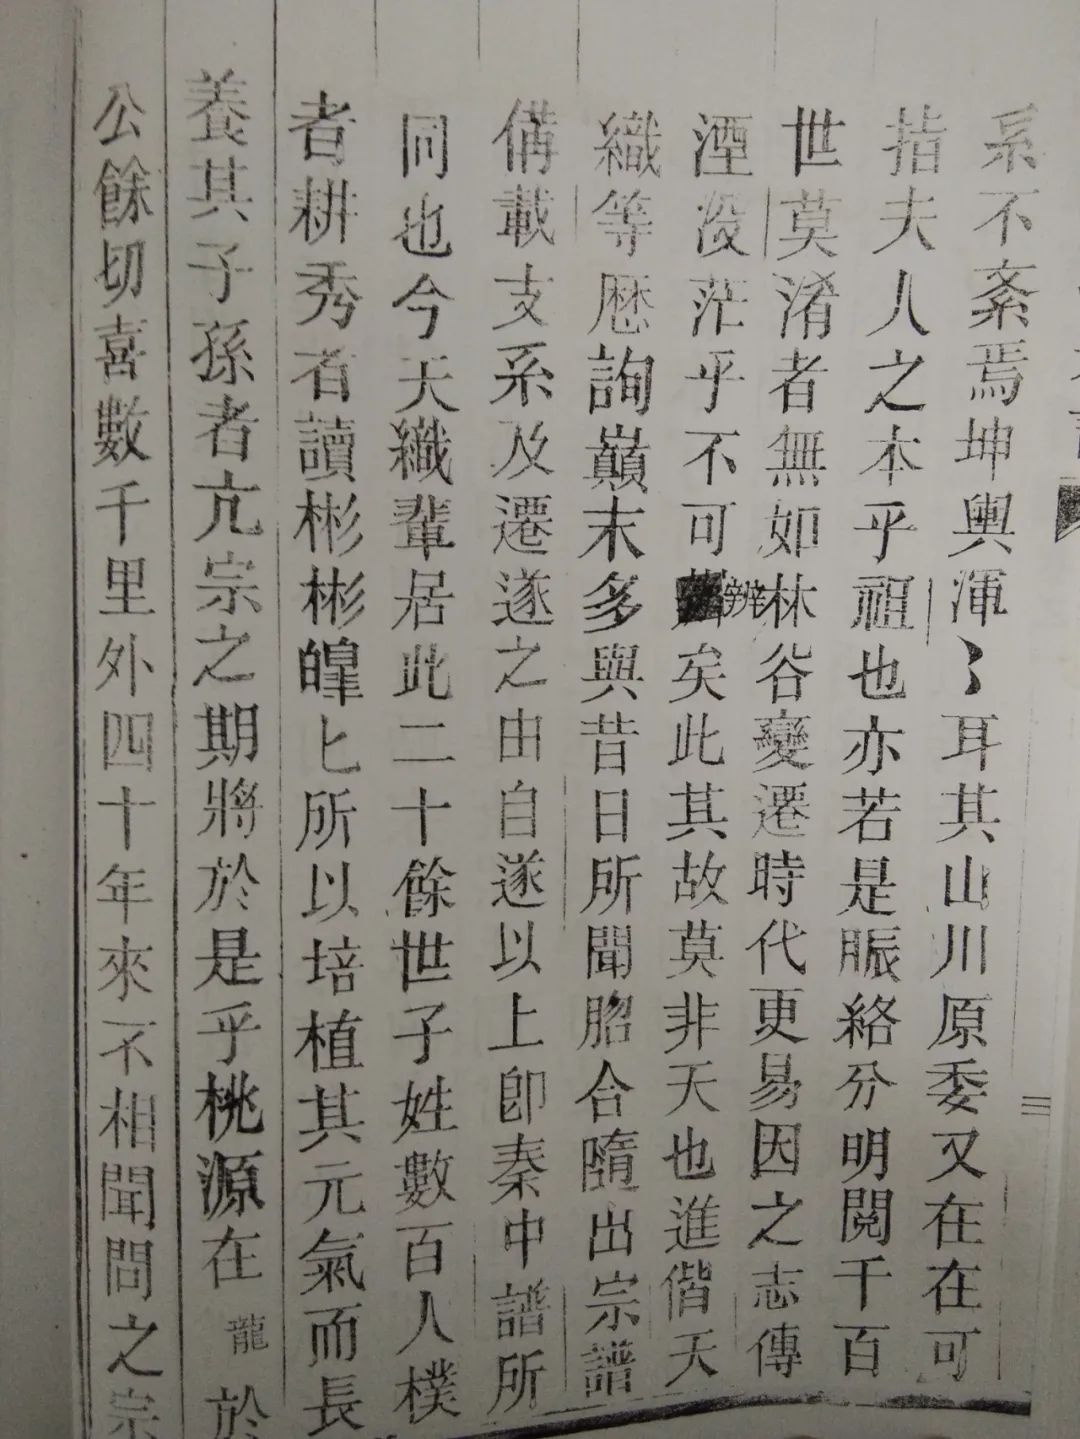 系不紊焉坤輿渾〻耳其山川原委又在在可
指夫人之本乎祖也亦若是脈絡分明閱千百
世莫淆者無如林谷變遷時代更易因之志傳
湮沒茫乎不可辨矣此其故莫非天也進偕天
織等歷詢巔末多與昔日所聞脗合隨出宗譜
備載支系及遷遂之由自遂以上即秦中譜所
同也今天織輩居此二十餘世子姓數百人樸
者耕秀者讀彬彬皥匕所以培植其元氣而長
養其子孫者亢宗之期將於是乎桃源在龍於
公餘切喜數千里外四十年來不相聞問之宗